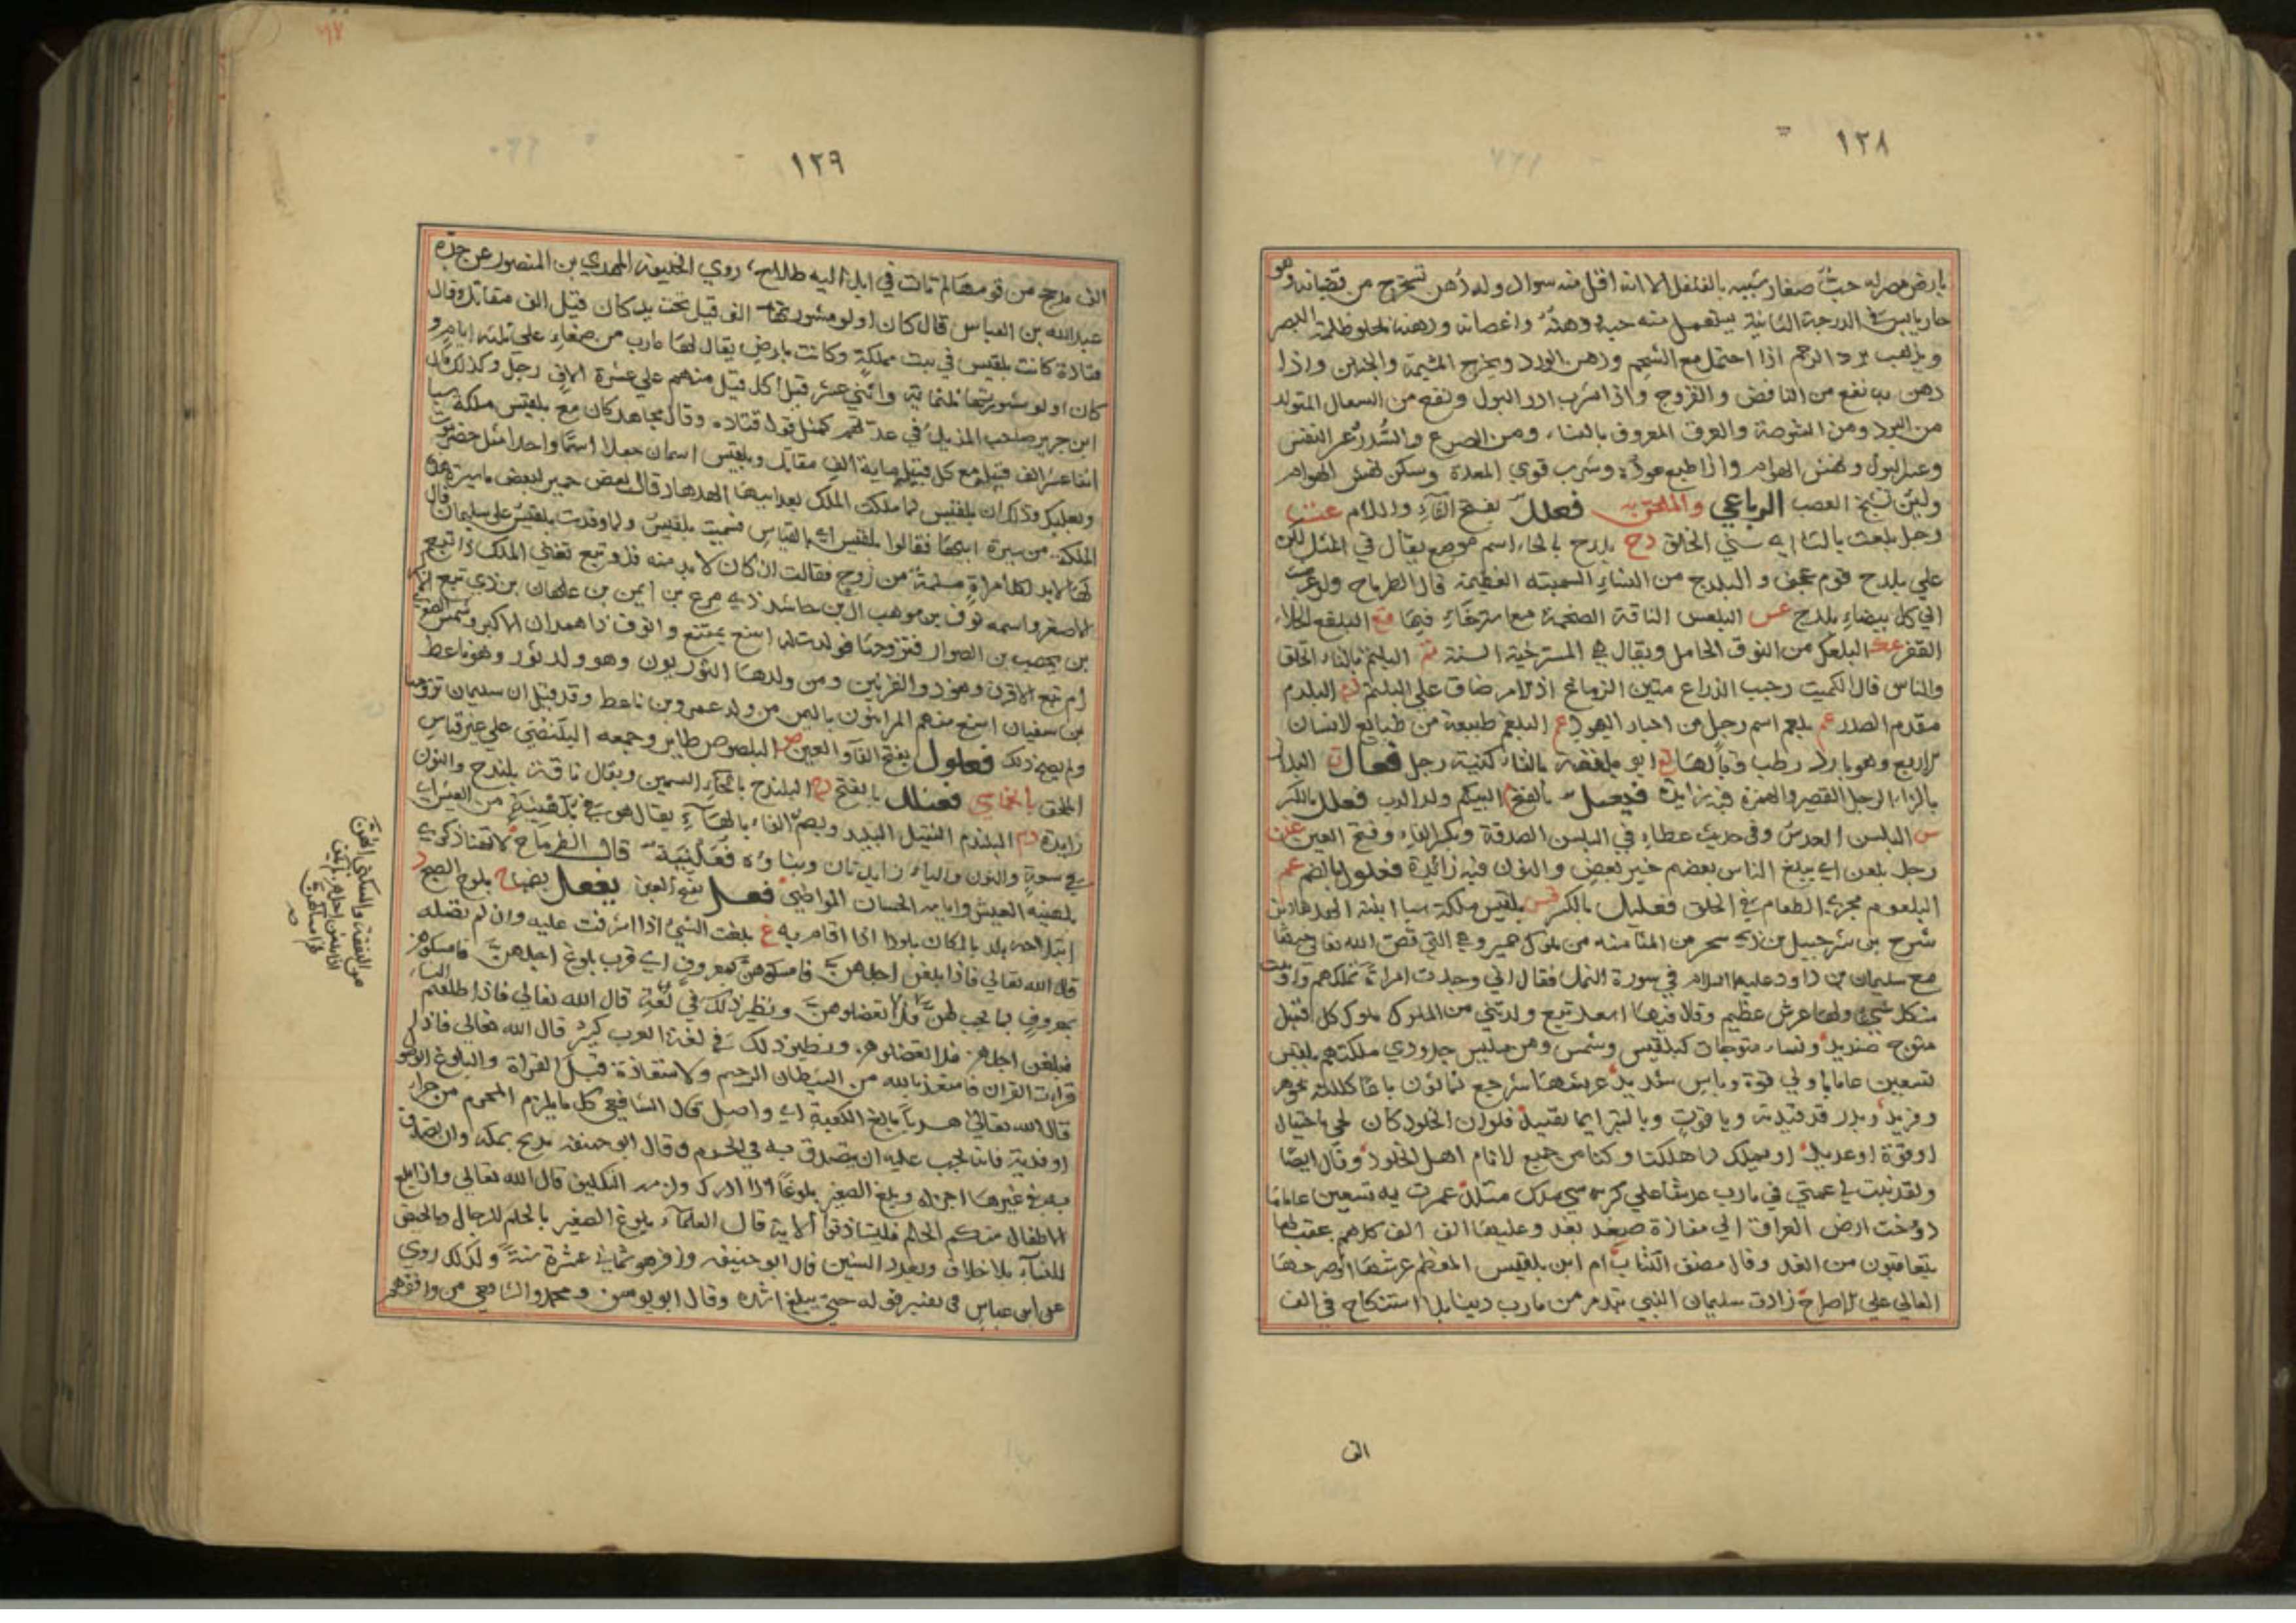 ١٢٨
بارض مصر له حب صغار شبيه بالفلفل الا انه اقل منه سواد وله دهن تستخرج من قضبانه وهو
حار يابس في الدرجة الثانية يستعمل منه حبه ودهنه واغصانه ودهنه يجلو ظلمة البصر
ويذهب برد الرحم اذا احتمل مع الشحم ودهن الورد ويخرج المشيمة والجنين واذا
دهن به نفع من النافض والقروح واذا شرب ادر البول ونفع من السعال المتولد
من البرد ومن الشوصة والعرق المعروف بالنسا ومن الصرع والسدر وعسر النفس
وعسر البول ونهش الهوام واذا طبع عوده وشرب قوي المعدة وسكن نهش الهوام
ولين تشنج العصب الرباعي والملحق به فعلل بفتح الفاء واللام
رجل بلعث بالثا اي سئ الخلق دح بلدح بالحاء اسم موضع يقال في المثل لكن
علي بلدح قوم عجف و البلدح من النساء السمينه العظيمة قال الطرماح
الي كل بيضاء بلدح عس البلعس الناقة الضخمة مع استرخاء فيها قع البلقع الخلاء
القفر عك البلعك من النوق الحامل ويقال هي المسترخية المسنة ثم البلثم بالثاء الخلق
والناس قال الكميت رحب الذراع متين الزماع اذ الامر ضاق علي البلثم دم البلدم
مقدم الصدر عم بلعم اسم رجل من احبار اليهود غم البلغم طبيعة من طبائع الانسان
الاربع وهو بارد رطب وبالهاء ابو بلغمة بالفاء كنية رجل فعال
بالزاء الرجل القصير والهمزة فيه زايدة فيعل بالفتح البيلم ولد الدب فعلل بالكسر
س البلسن العدس وفي حديث عطاء في البلسن الصدقة وبكسر الفاء وفتح العين
رجل بلغن اي يبلغ الناس بعضهم خبر بعض والنون فيه زائدة فعلول بالضم عم
البلعوم مجري الطعام في الحلق فعليل بالكسر قس بلقيس ملكة سبا ابنة الهدهاد بن
شرح بن شرحبيل بن ذي سحر من المثامنة من ملوك حمير وهي التي قص الله تعالى خبرها
مع سليمان بن داود عليهما السلام في سورة النمل فقال اني وجدت امراة تملكهم واوتيت
من كل شيء ولها عرش عظيم وقال فيها اسعد تبع ولدتني من الملوك ملوك كل قيل
متوج صنديد ونساء متوجات كبلقيس وشمس ومن لميس جدودي ملكتهم بلقيس
تسعين عاما باولي قوة وباس شديد عرشها شرجع ثمانون باعا كللته بجوهر
وفريد وبدر قد قيدته وياقوت وبالتبر ايما تقييد فلو ان الخلود كان لحي باحتيال
او قوة او عديد او بملك لما هلكنا وكنا من جميع الانام اهل الخلود وقال ايضا
ولقد بنت لي عمتي في مارب عرشا علي كرسي ملك متلد عمرت به تسعين عاما
دوخت ارض العراق الي مفازة صيهد بعد وعليها الف الف كلهم عقب لها
يتعاقبون من الغد وقال مصنف الكتاب ام ابن بلقيس المعظم عرشها او صرحها
العالي علي الاصراح زادت سليمان النبي بتدمر من مارب دينا بلا استنكاح في الف
الف
١٢٩
الف مذحج من قومها لم تات في ابل اليه طلاح روي الخليفة المهدي بن المنصور عن جده
عبدالله بن العباس قال كان اولو مشورتها الف قيل تحت يد كان قيل الف مقاتل وقال
قتادة كانت بلقيس في بيت مملكة وكانت بارض يقال لها مارب من صنعاء علي ثلثة ايام و
كان اولو مشورتها ثلثمائة واثني عشر قيلا كل قيل منهم علي عشرة الاف رجل وكذلك قال
ابن جرير صاحب المذيل في عدتهم كمثل قول قتاده وقال مجاهد كان مع بلقيس ملكة سبا
اثنا عشر الف قيل مع كل قيل ماية الف مقاتل وبلقيس اسمان جعلا اسما واحدا مثل حضرموت
وبعلبك وذلك ان بلقيس لما ملكت الملك بعد ابيها الهدهاد قال بعض حمير لبعض ما سيرة هذه
الملكة من سيرة ابيها فقالوا بلقيس اي بالقياس فسميت بلقيس ولما وفدت بلقيس علي سليمان قال
لها لا بد لكل امراة مسلمة من زوج فقالت ان كان لا بد منه فذو تبع تعني الملك ذا تبع
الاصغر واسمه نوف بن موهب ال بن حاشد ذي مرع بن ايمن بن علهان بن ذي تبع
بن يحصب بن الصوار فتزوجها فولدت له اسنع يمتنع و انوف ذا همدان الاكبر وشمس الصغري
ام تبع الاقرن وهو ذو القرنين ومن ولدها الثوريون وهو ولد ثور وهو ناعط
بن سفيان اسنع منهم المرانيون باليمن من ولد عمرو بن ناعط وقد قيل ان سليمان تزوجها
ولم يصح ذلك فعلول بفتح الفاء والعين ص البلصوص طاير وجمعه البلنصي علي غير قياس
الملحق بالخماسي فعنلل بالفتح دح البلندح بالحاء السمين ويقال ناقة بلندح والنون
زايدة دم البلندم الثقيل البليد وبضم الفاء بالهاء يقال هو في بلهنية من العيش اي
في سعة والنون والياء زايدتان وبناؤه فعلنية قال الطرماح
بلهنية العيش وايامه الحسان المواطئ فعل بفتح العين يفعل بضمها ج بلوج الصبح
ابتلاجه بلد بالمكان بلودا اذا اقام به غ بلغت الشئ اذا اشرفت عليه وان لم تصله
قال الله تعالي فاذا بلغن اجلهن فامسكوهن بمعروف اي قرب بلوغ اجلهن فامسكوهن
بمعروف بما يجب لهن ولا تعضلوهن ونظير ذلك في لغة قال الله تعالي فاذا طلقتم النساء
فبلغن اجلهن فلا تعضلوهن ونظير ذلك في لغة العرب كثير قال الله تعالي فاذا
قرات القران فاستعذ بالله من الشيطان الرجيم والاستعاذة قبل القراة والبلوغ الوصول
قال الله تعالي هديا بالغ الكعبة اي واصل قال الشافعي كل ما يلزم المحرم من جزاء
او فدية فانه يجب عليه ان يتصدق به في الحرم وقال ابو حنيفه يذبح بمكة وان تصدق
به في غيرها اجزاه وبلغ الصغير بلوغا اذا ادرك ولزمه التكليف قال الله تعالي واذا بلغ
الاطفال منكم الحلم فليستاذنوا الاية قال العلماء بلوغ الصغير بالحلم للرجال وبالحيض
للنساء بلا خلاف وبعدد السنين قال ابو حنيفه وزفر هو ثماني عشرة سنة وكذلك روي
عن ابن عباس في تفسير قوله حتي يبلغ اشده وقال ابو يوسف ومحمد والشافعي من وافقهم
من النفقة والسكني لهن